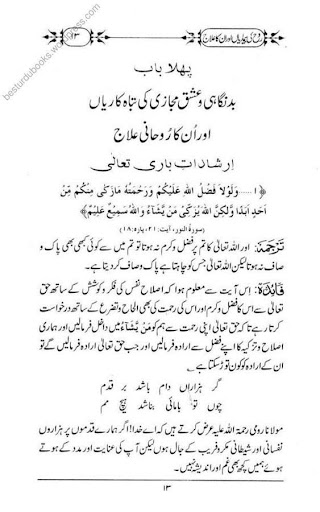 روح کی بیماریاں اور ان کا علاج
۱۳
besturdubooks.wordpress.com
پہلا باب
بدنگاہی و عشق مجازی کی تباہ کاریاں
اور اُن کا رُوحانی علاج
اِرشاداتِ باری تعالیٰ
﴿۱.....وَلَوْلَا فَضْلُ اللهِ عَلَيْكُمْ وَرَحْمَتُهُ مَازَكٰى مِنْكُمْ مِّنْ
اَحَدٍ اَبَدًا وَّلٰكِنَّ اللهَ يُزَكِّىْ مَنْ يَّشَآءُ وَاللهُ سَمِيْعٌ عَلِيْمٌ﴾
(سورۃ النور، آیت:۲۱، پارہ:۱۸)
تَرْجَمَہ: اور اللہ تعالیٰ کا تم پر فضل و کرم نہ ہوتا تو تم میں سے کوئی کبھی بھی پاک و
صاف نہ ہوتا لیکن اللہ تعالیٰ جس کو چاہتا ہے پاک و صاف کر دیتا ہے۔
فَائِدَہ: اِس آیت سے معلوم ہوا کہ اصلاحِ نفس کی فکر و کوشش کے ساتھ حق
تعالیٰ سے اس کا فضل و کرم اور اس کی رحمت کی بھی الحاح و تضرع کے ساتھ درخواست
کرتا رہے تا کہ حق تعالیٰ اپنی رحمت سے ہم کو مَنْ يَّشَآءُ میں داخل فرمالیں اور ہماری
اصلاح و تزکیہ کا اپنے فضل سے ارادہ فرمالیں اور جب حق تعالیٰ ارادہ فرمالیں گے تو
ان کے ارادہ کو کون توڑ سکتا ہے۔
گر ہزاراں دام باشد بر قدم
چوں تو بامائی نباشد ہیچ غم
مولانا رومی رحمۃ اللہ علیہ عرض کرتے ہیں کہ اے خدا! اگر ہمارے قدموں پر ہزاروں
نفسانی اور شیطانی مکر و فریب کے جال ہوں لیکن آپ کی عنایت اور مدد کے ہوتے
ہوئے ہمیں کچھ بھی غم اور اندیشہ نہیں۔
۱۳